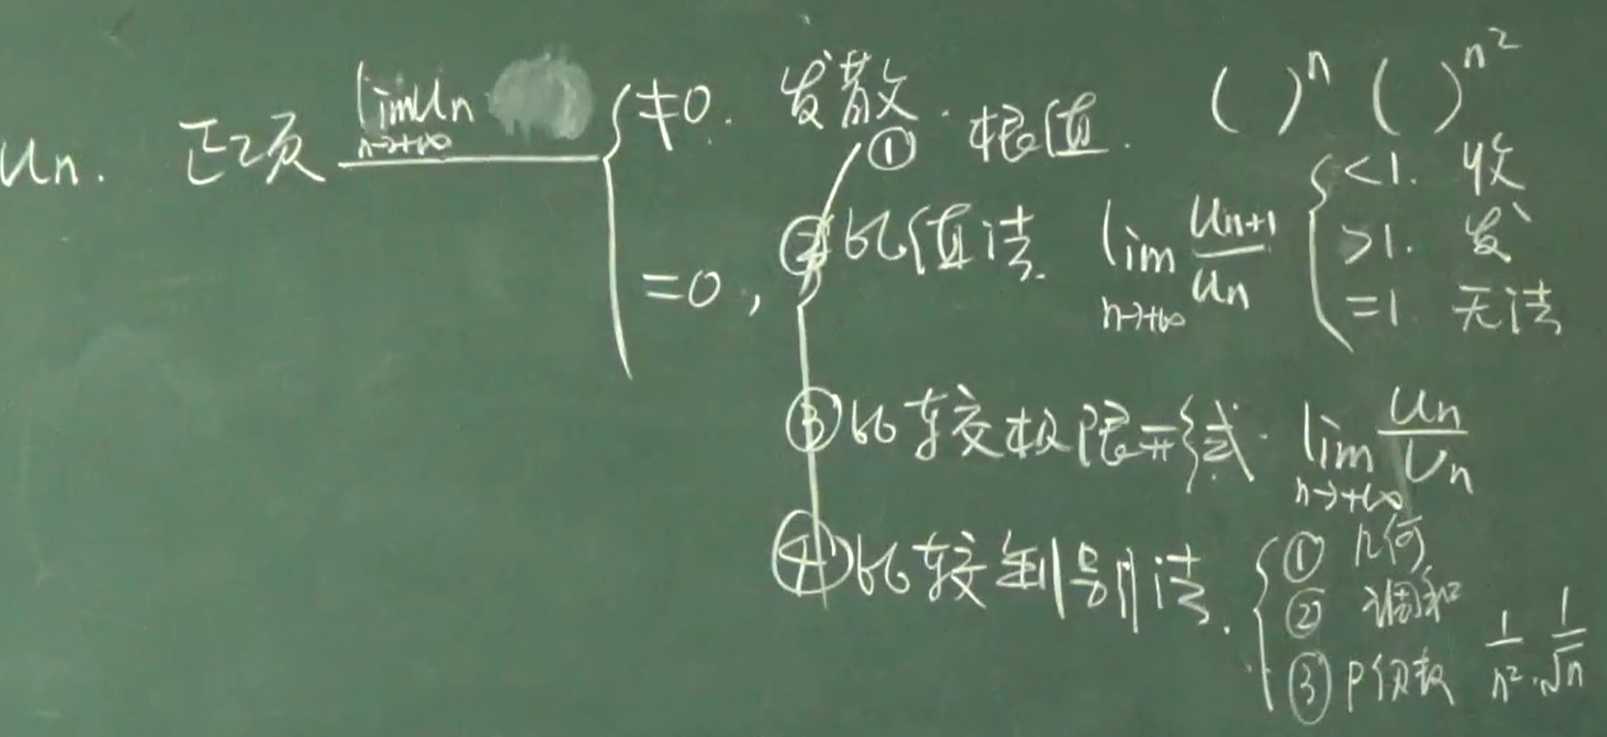 Un. 正项 lim Un n→+∞ { ≠0. 发散. ( )ⁿ ( )ⁿ²
① 根值.
=0, ② 比值法. lim n→+∞ Un+1/Un { <1. 收
>1. 发
=1. 无法
③ 比较极限形式. lim n→+∞ Un/Vn
④ 比较判别法. { ① 几何
② 调和
③ P级数 1/n². 1/√n